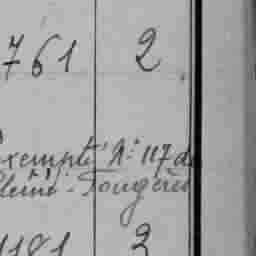 761 2
exempté N° 117 de
Pleine-Fougères
1181 2